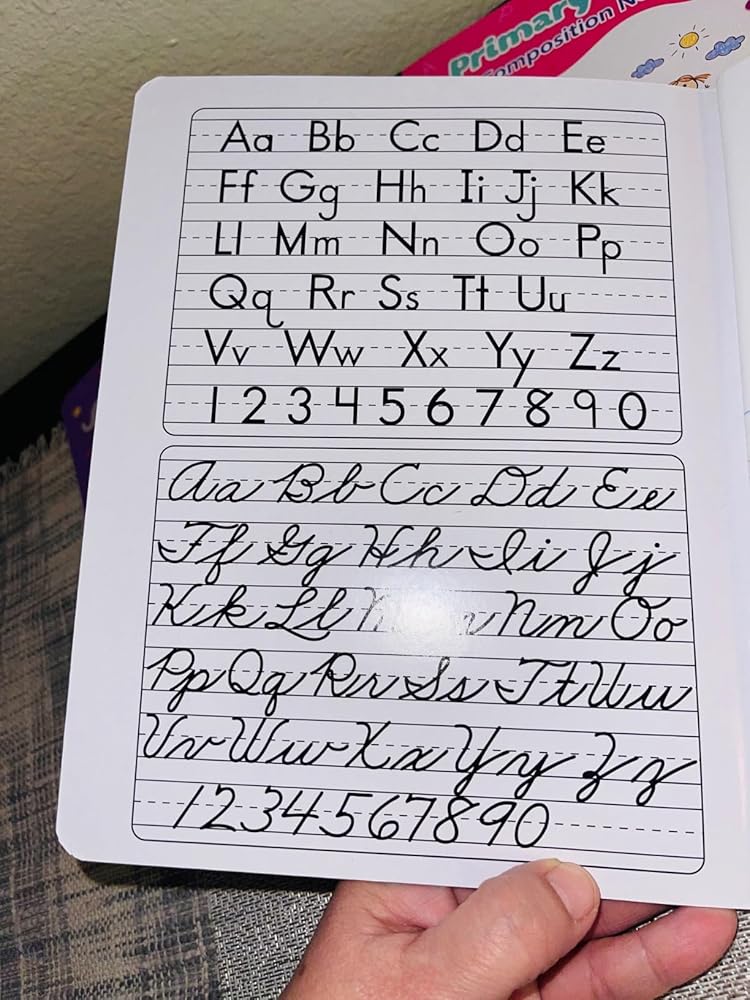 Primary
Composition
Aa Bb Cc Dd Ee
Ff Gg Hh Ii Jj Kk
Ll Mm Nn Oo Pp
Qq Rr Ss Tt Uu
Vv Ww Xx Yy Zz
1 2 3 4 5 6 7 8 9 0
Aa Bb Cc Dd Ee
Ff Gg Hh Ii Jj
Kk Ll Nn Oo
Pp Qq Rr Ss Tt Uu
Vv Ww Xx Yy Zz
1 2 3 4 5 6 7 8 9 0